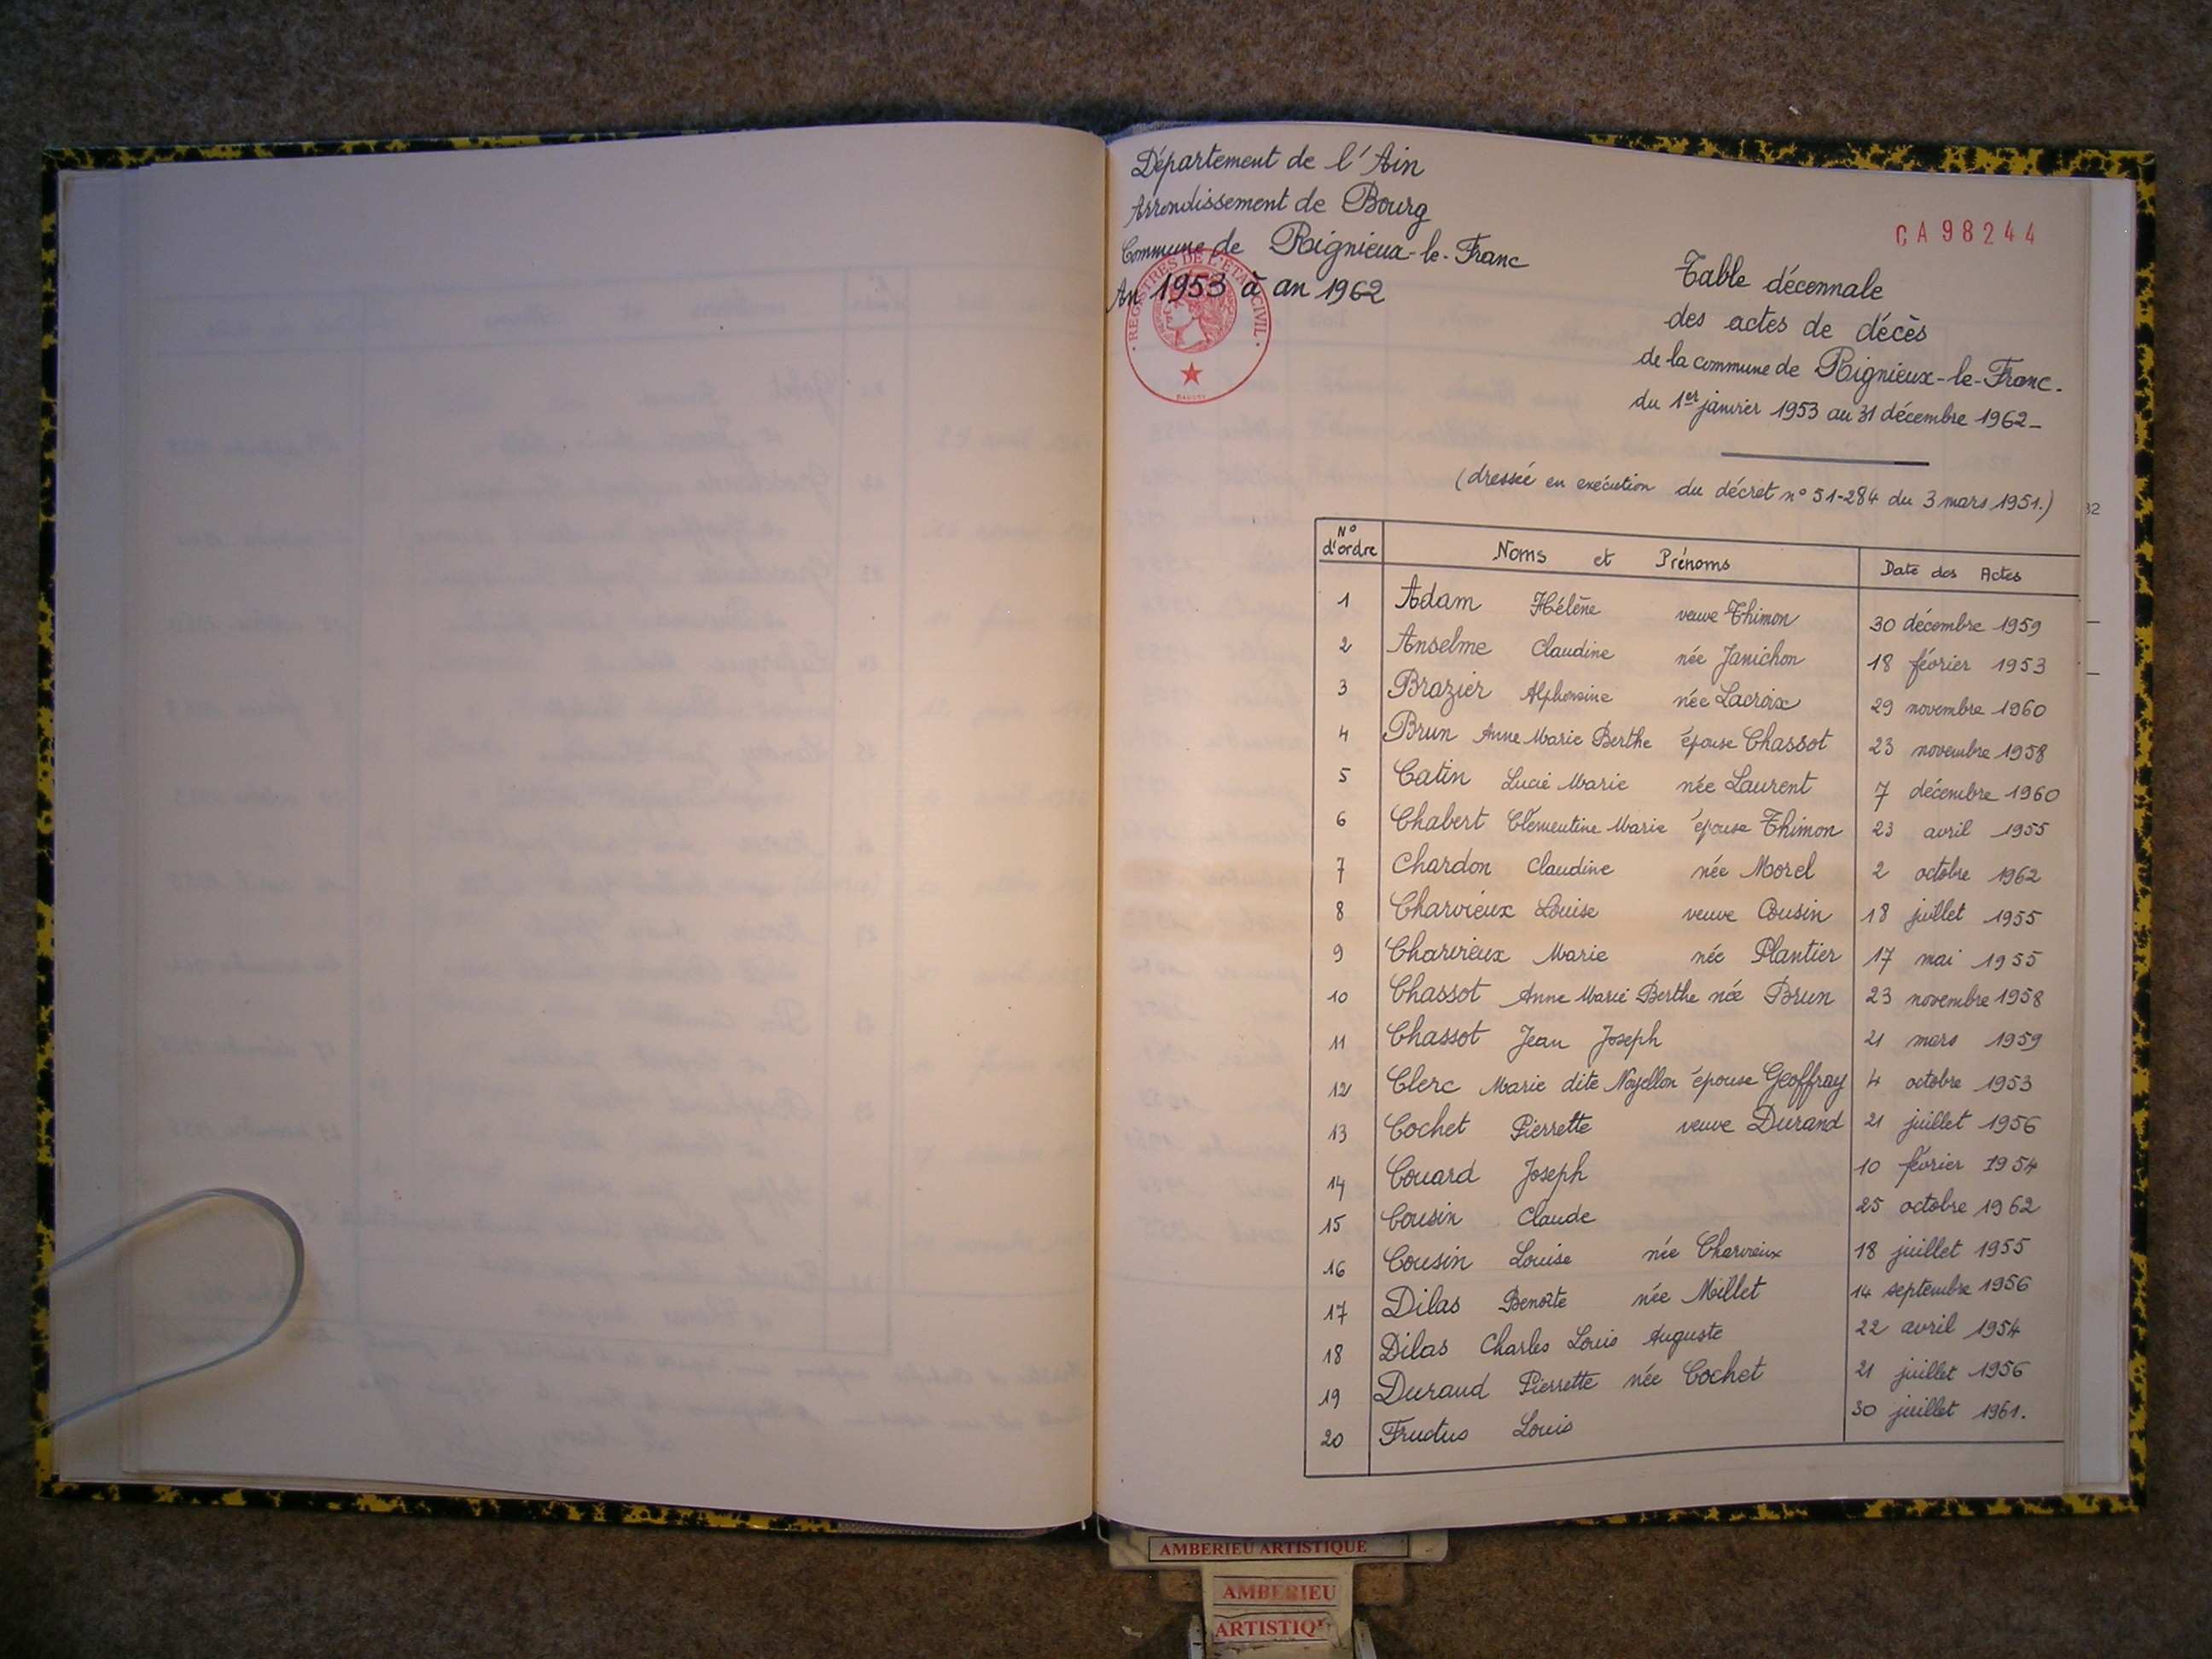 Département de l'Ain
Arrondissement de Bourg
Commune de Rignieux-le-Franc
An 1953 à an 1962
REGISTRES DE L'ETAT CIVIL
CA98244
Table décennale
des actes de décès
de la commune de Rignieux-le-Franc.
du 1er janvier 1953 au 31 décembre 1962_
(dressée en exécution du décret n° 51-284 du 3 mars 1951.)
N° d'ordre Noms et Prénoms Date des Actes
1 Adam Hélène veuve Thimon 30 décembre 1959
2 Anselme Claudine née Janichon 18 février 1953
3 Brazier Alphonsine née Lacroix 29 novembre 1960
4 Brun Anne Marie Berthe épouse Chassot 23 novembre 1958
5 Catin Lucie Marie née Laurent 7 décembre 1960
6 Chabert Clémentine Marie épouse Thimon 23 avril 1955
7 Chardon Claudine née Morel 2 octobre 1962
8 Charvieux Louise veuve Cousin 18 juillet 1955
9 Charvieux Marie née Plantier 17 mai 1955
10 Chassot Anne Marie Berthe née Brun 23 novembre 1958
11 Chassot Jean Joseph 21 mars 1959
12 Clerc Marie dite Noyellon épouse Geoffray 4 octobre 1953
13 Cochet Pierrette veuve Durand 21 juillet 1956
14 Couard Joseph 10 février 1954
15 Cousin Claude 25 octobre 1962
16 Cousin Louise née Charvieux 18 juillet 1955
17 Dilas Benoîte née Millet 14 septembre 1956
18 Dilas Charles Louis Auguste 22 avril 1954
19 Durand Pierrette née Cochet 21 juillet 1956
20 Frudus Louis 30 juillet 1961.
32
AMBERIEU ARTISTIQUE
AMBERIEU
ARTISTIQ